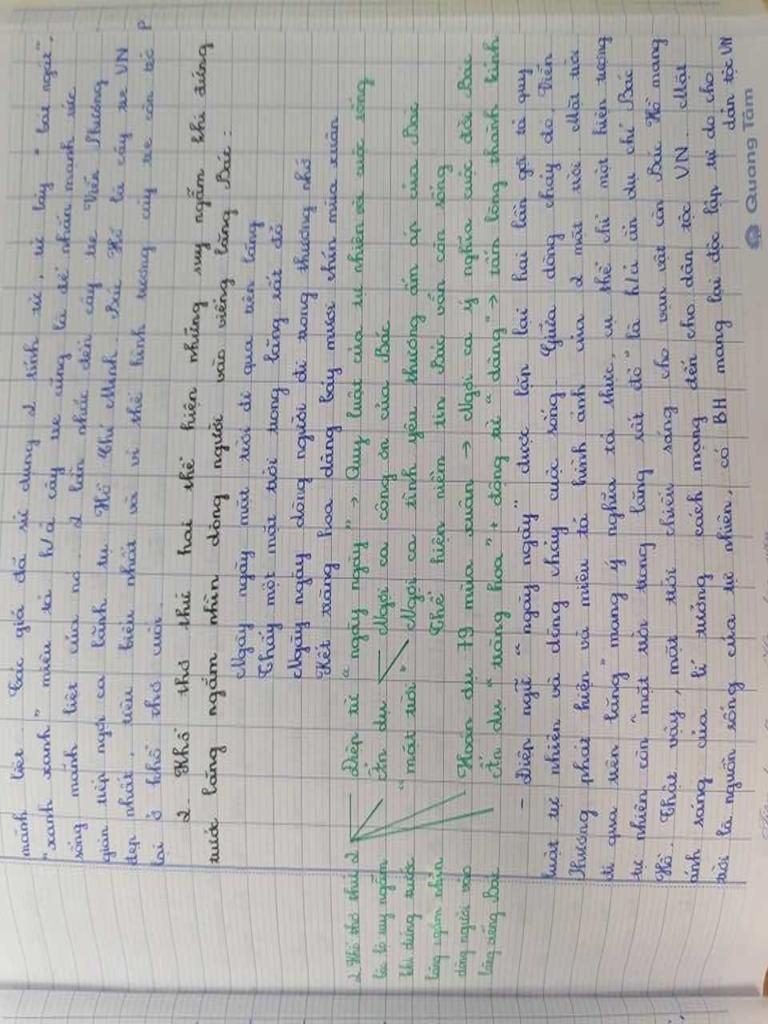 mãnh liệt. Tác giả đã sử dụng 2 tính từ, từ láy "bát ngát",
"xanh xanh" miêu tả h/ả cây tre cũng là để nhấn mạnh sức
sống mãnh liệt của nó. 2 lần nhắc đến cây tre Viễn Phương
gián tiếp ngợi ca lãnh tụ Hồ Chí Minh. Bác Hồ là cây tre VN
đẹp nhất, tiêu biểu nhất và vì thế hình tượng cây tre còn trở
lại ở khổ thơ cuối.
2. Khổ thơ thứ hai thể hiện những suy ngẫm khi đứng
trước lăng ngắm nhìn dòng người vào viếng lăng Bác:
Ngày ngày mặt trời đi qua trên lăng
Thấy một mặt trời trong lăng rất đỏ
Ngày ngày dòng người đi trong thương nhớ
Kết tràng hoa dâng bảy mươi chín mùa xuân
2 Khổ thơ thứ 2
bộc lộ suy ngẫm
khi đứng trước
lăng ngắm nhìn
dòng người vào
lăng viếng Bác
Điệp từ "ngày ngày" → Quy luật của tự nhiên và cuộc sống
Ẩn dụ Ngợi ca công ơn của Bác
"mặt trời" Ngợi ca tình yêu thương ấm áp của Bác
Thể hiện niềm tin Bác vẫn còn sống
Hoán dụ 79 mùa xuân → Ngợi ca ý nghĩa cuộc đời Bác
Ẩn dụ "tràng hoa" + động từ "dâng" → tấm lòng thành kính
- Điệp ngữ "ngày ngày" được lặp lại hai lần gợi tả quy
luật tự nhiên và dòng chảy cuộc sống. Giữa dòng chảy đó, Viễn
Phương phát hiện và miêu tả hình ảnh của 2 mặt trời. Mặt trời
đi qua trên lăng" mang ý nghĩa tả thực, cụ thể chỉ một hiện tượng
tự nhiên còn "mặt trời trong lăng rất đỏ" là h/ả ẩn dụ chỉ Bác
Hồ. Thật vậy, mặt trời chiếu sáng cho vạn vật còn Bác Hồ mang
ánh sáng của lí tưởng cách mạng đến cho dân tộc VN. Mặt
trời là nguồn sống của tự nhiên, có BH mang lại độc lập tự do cho
dân tộc VN
Quang Tâm